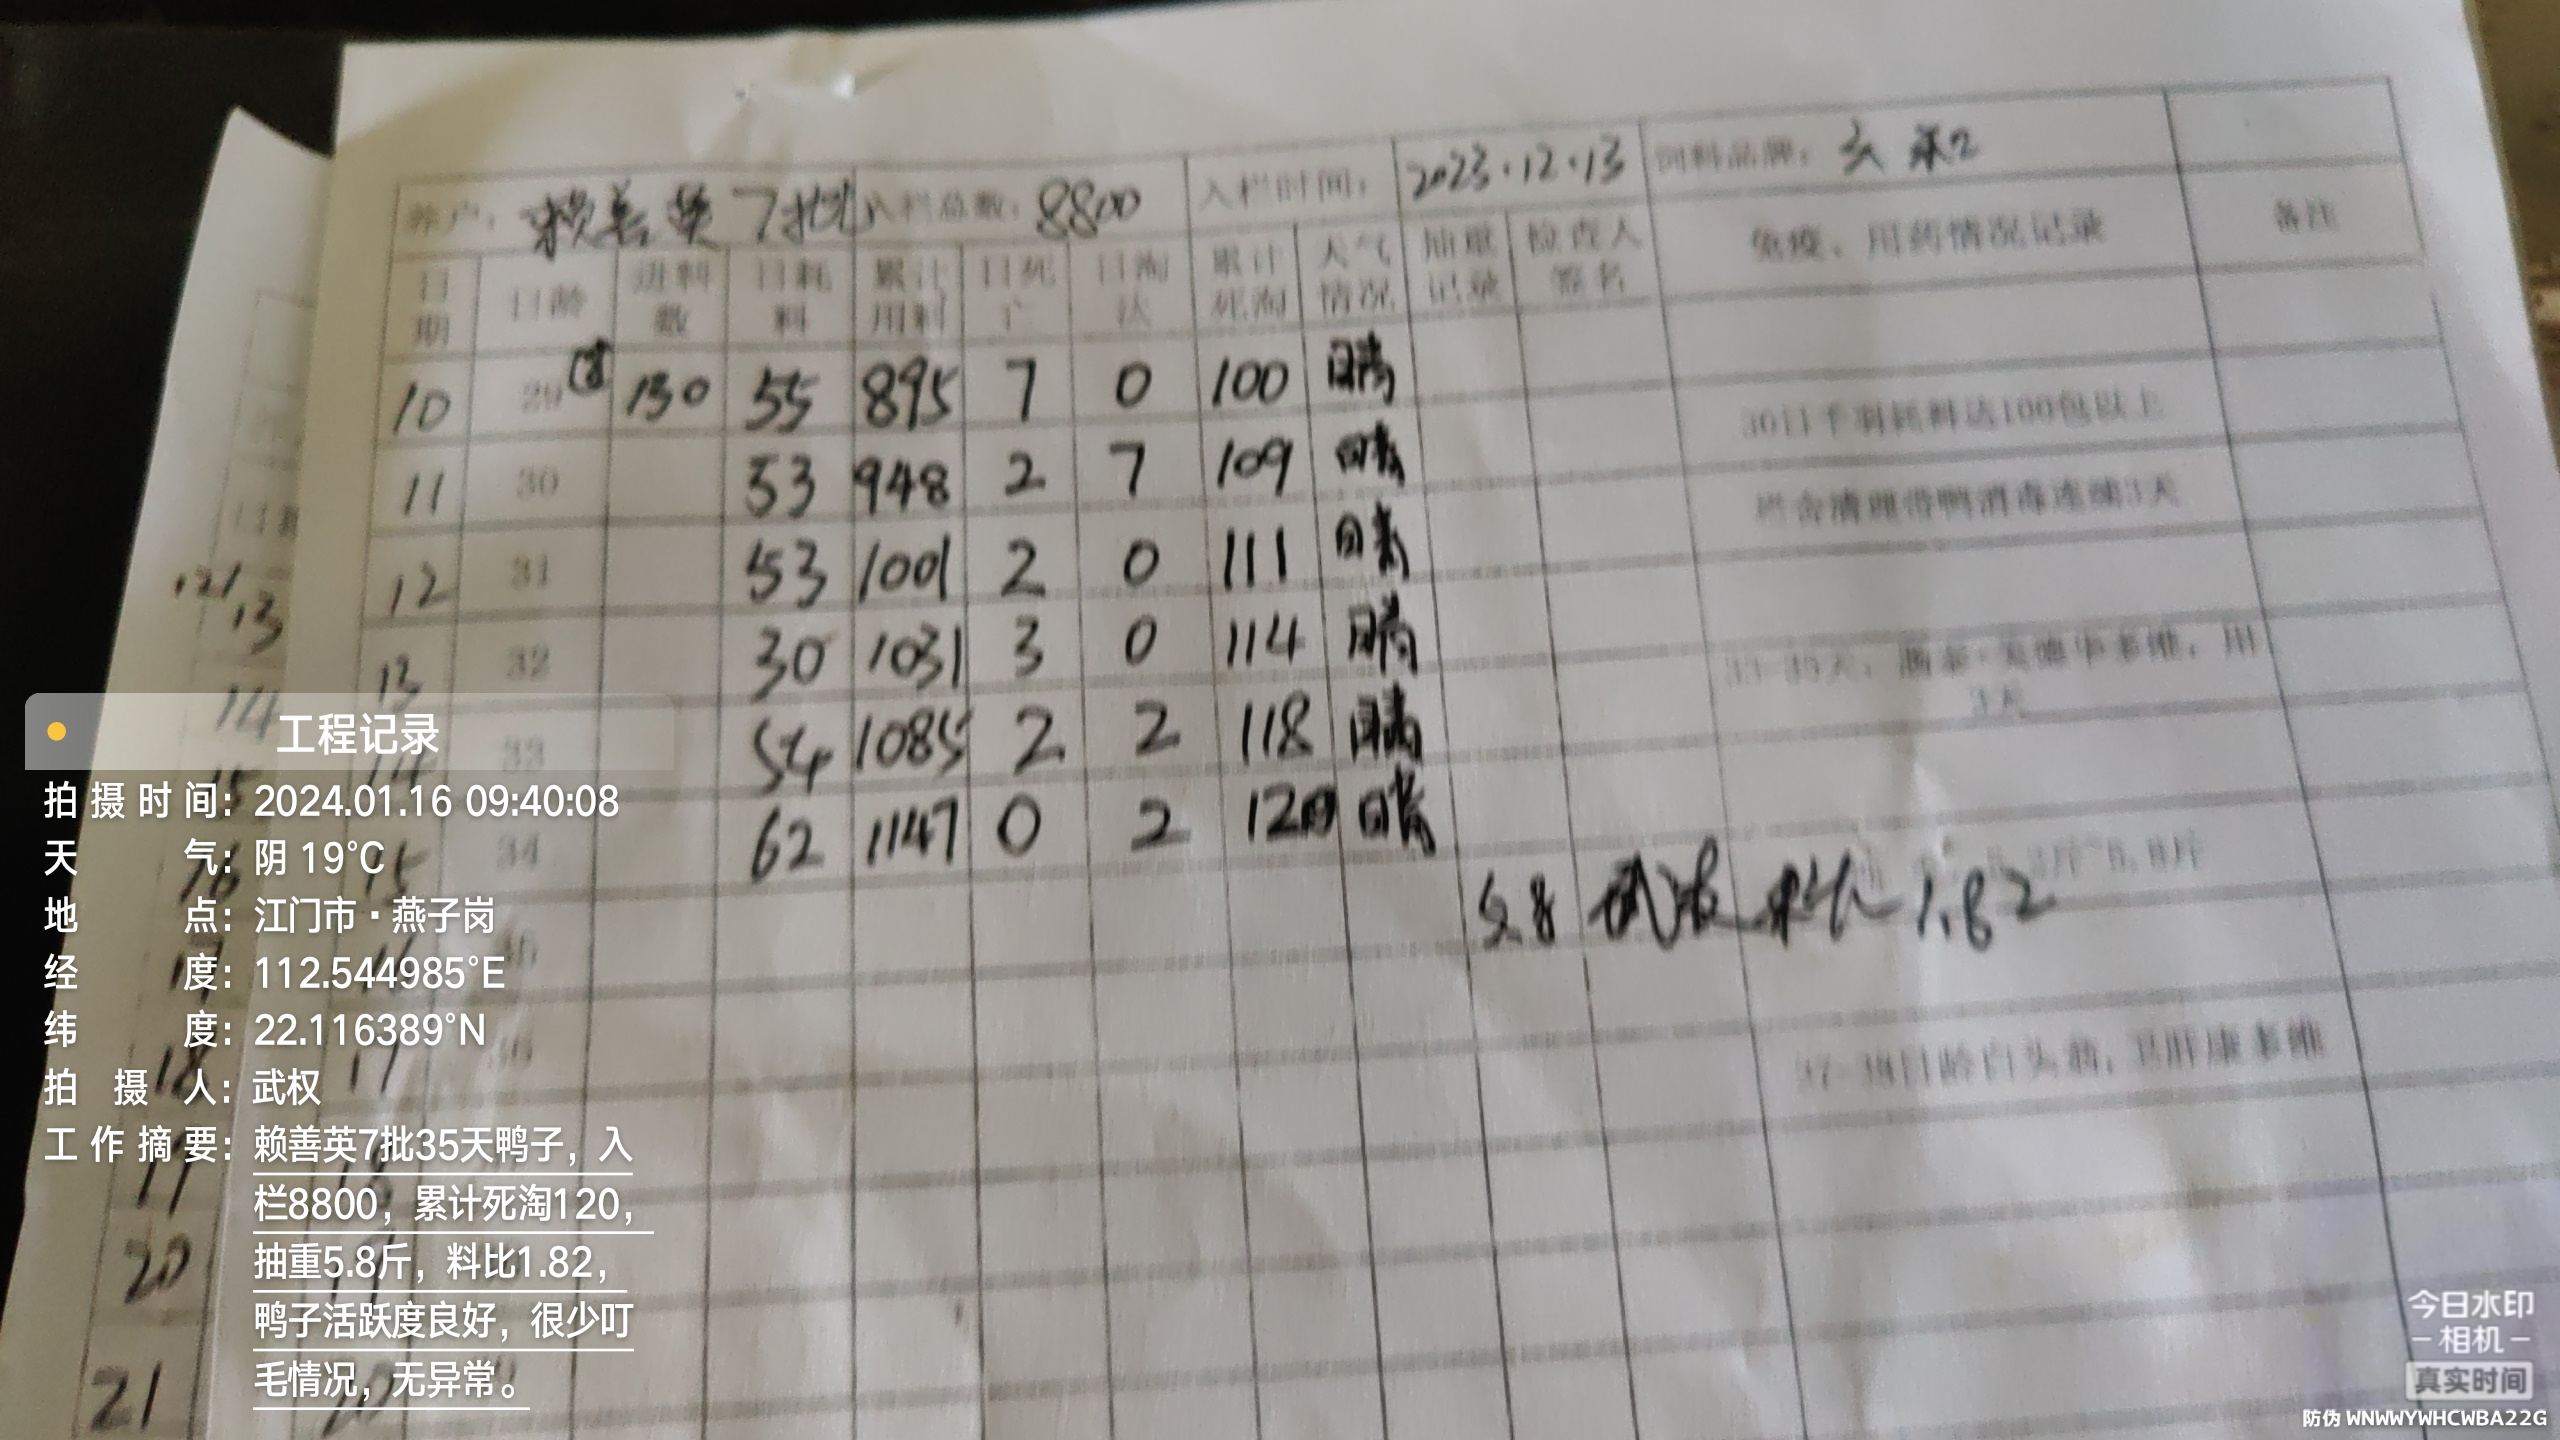 养户: 赖善英 7批 入栏总数: 8800 入栏时间: 2023.12.13 饲料品牌:
日期 日龄 进料数 日耗料 累计用料 日死亡 日淘汰 累计死淘 天气情况 抽重记录 检查人签名 免疫、用药情况记录 备注
10 29 130 55 895 7 0 100 晴
30日千羽耗料达100包以上
11 30 53 948 2 7 109 晴
栏舍清理带鸭消毒连续3天
12 31 53 1001 2 0 111 晴
13 32 30 1031 3 0 114 晴
33-35天, 多维, 用
3天
14 33 54 1085 2 2 118 晴
15 34 62 1147 0 2 120 晴
5.8 料比 1.82
16
17 36
37-38日龄白头翁, 卫肝康多维
20
12/13
14
15
16
17
18
19
20
21
工程记录
拍摄时间: 2024.01.16 09:40:08
天气: 阴 19°C
地点: 江门市·燕子岗
经度: 112.544985°E
纬度: 22.116389°N
拍摄人: 武权
工作摘要: 赖善英7批35天鸭子，入
栏8800，累计死淘120，
抽重5.8斤，料比1.82，
鸭子活跃度良好，很少叮
毛情况，无异常。
今日水印
相机
真实时间
防伪 WNWWYWHCWBA22G